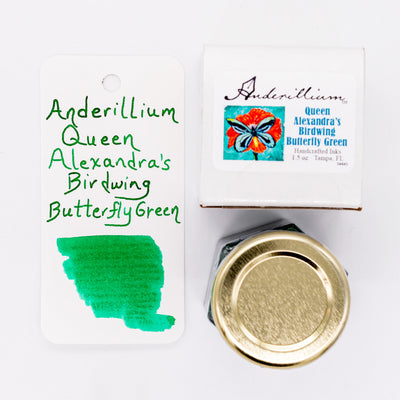 Anderillium
Queen
Alexandra's
Birdwing
Butterfly Green
Anderillium
Queen
Alexandra's
Birdwing
Butterfly Green
Handcrafted Inks
1.5 oz Tampa, FL